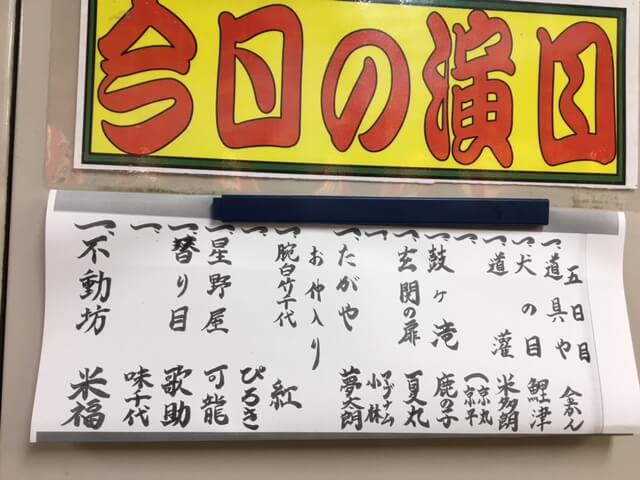 今日の演目
五日目
一、道具や 金かん
一、犬の目 鯉津
一、道灌 米多朗
一、 京丸 京平
一、鼓ヶ滝 鹿の子
一、玄関の扉 夏丸
一、 マグナム小林
一、たがや 夢太朗
お仲入り
一、腕白竹千代 紅
一、 ぴろき
一、星野屋 可龍
一、替り目 歌助
一、 味千代
一、不動坊 米福